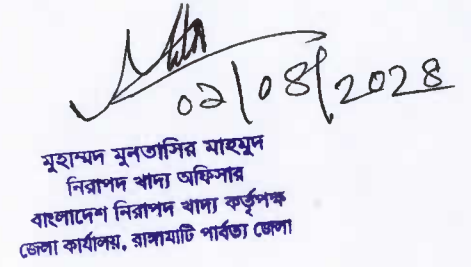 ০২/০৪/২০২৪
মুহাম্মদ মুনতাসির মাহমুদ
নিরাপদ খাদ্য অফিসার
বাংলাদেশ নিরাপদ খাদ্য কর্তৃপক্ষ
জেলা কার্যালয়, রাঙ্গামাটি পার্বত্য জেলা